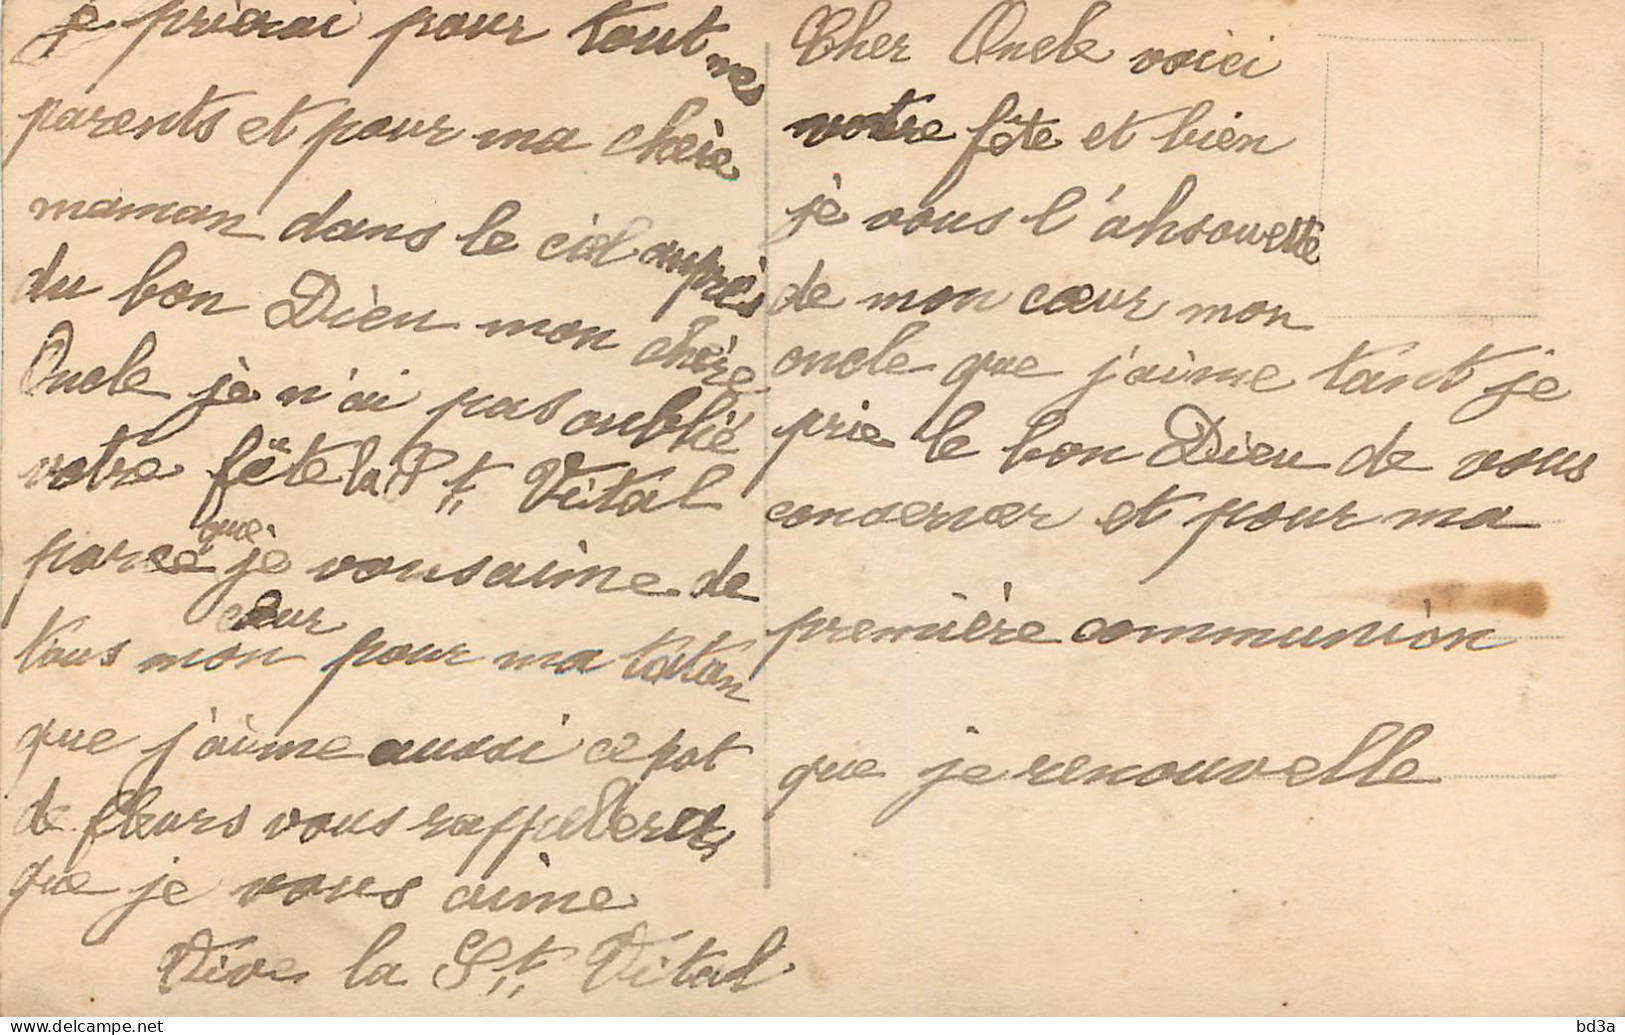 Cher Oncle voici
votre fête et bien
jè vous l'ahsouette
de mon cœur mon
oncle que j'aime tant je
prie le bon Dieu de vous
conserver et pour ma
première communion
que je renouvelle
je prierai pour tout mes
parents et pour ma chère
maman dans le ciel auprès
du bon Dieu mon chère
Oncle jè n'ai pas oublié
votre fête la St Vital
parce que jè vous aime de
tous mon cœur pour ma tatan
que j'aime aussi ce pot
de fleurs vous rappellera
que je vous aime
Vive la St Vital
bd3a